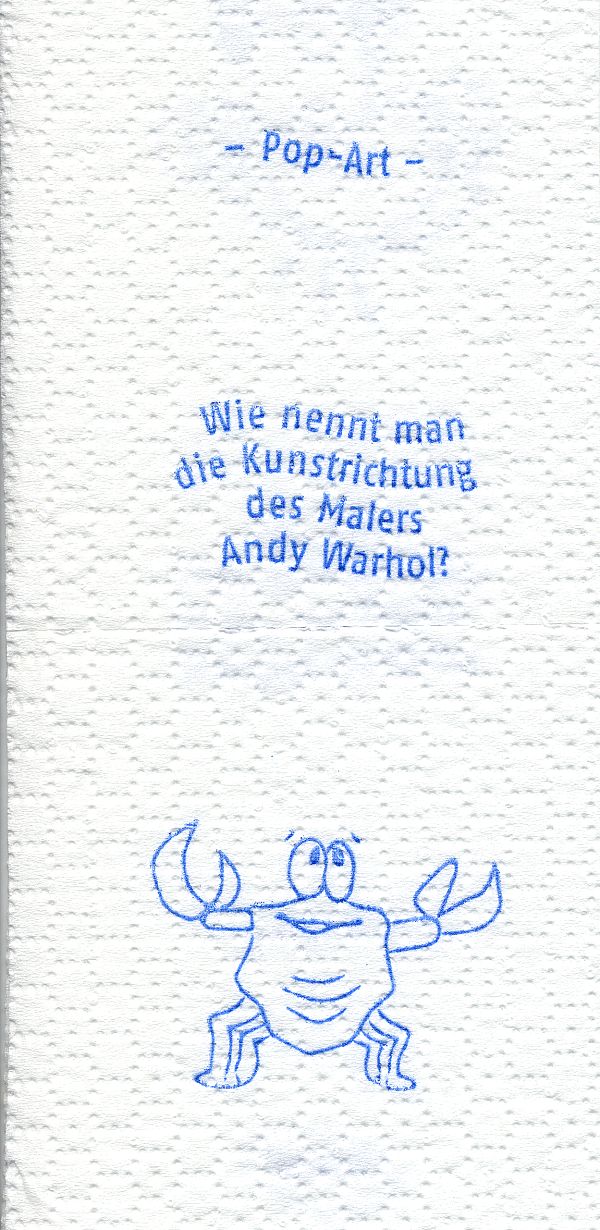 – Pop-Art –
Wie nennt man
die Kunstrichtung
des Malers
Andy Warhol?